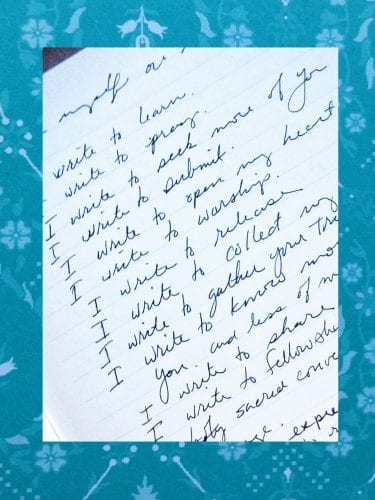 myself or
write to learn.
write to pray.
I write to seek more of you
I write to submit.
I write to open my heart
I write to worship.
I write to release
I write to collect my
I write to gather your
I write to know mo
you. and less of m
I write to share
I write to fellowshi
sacred conve
expre